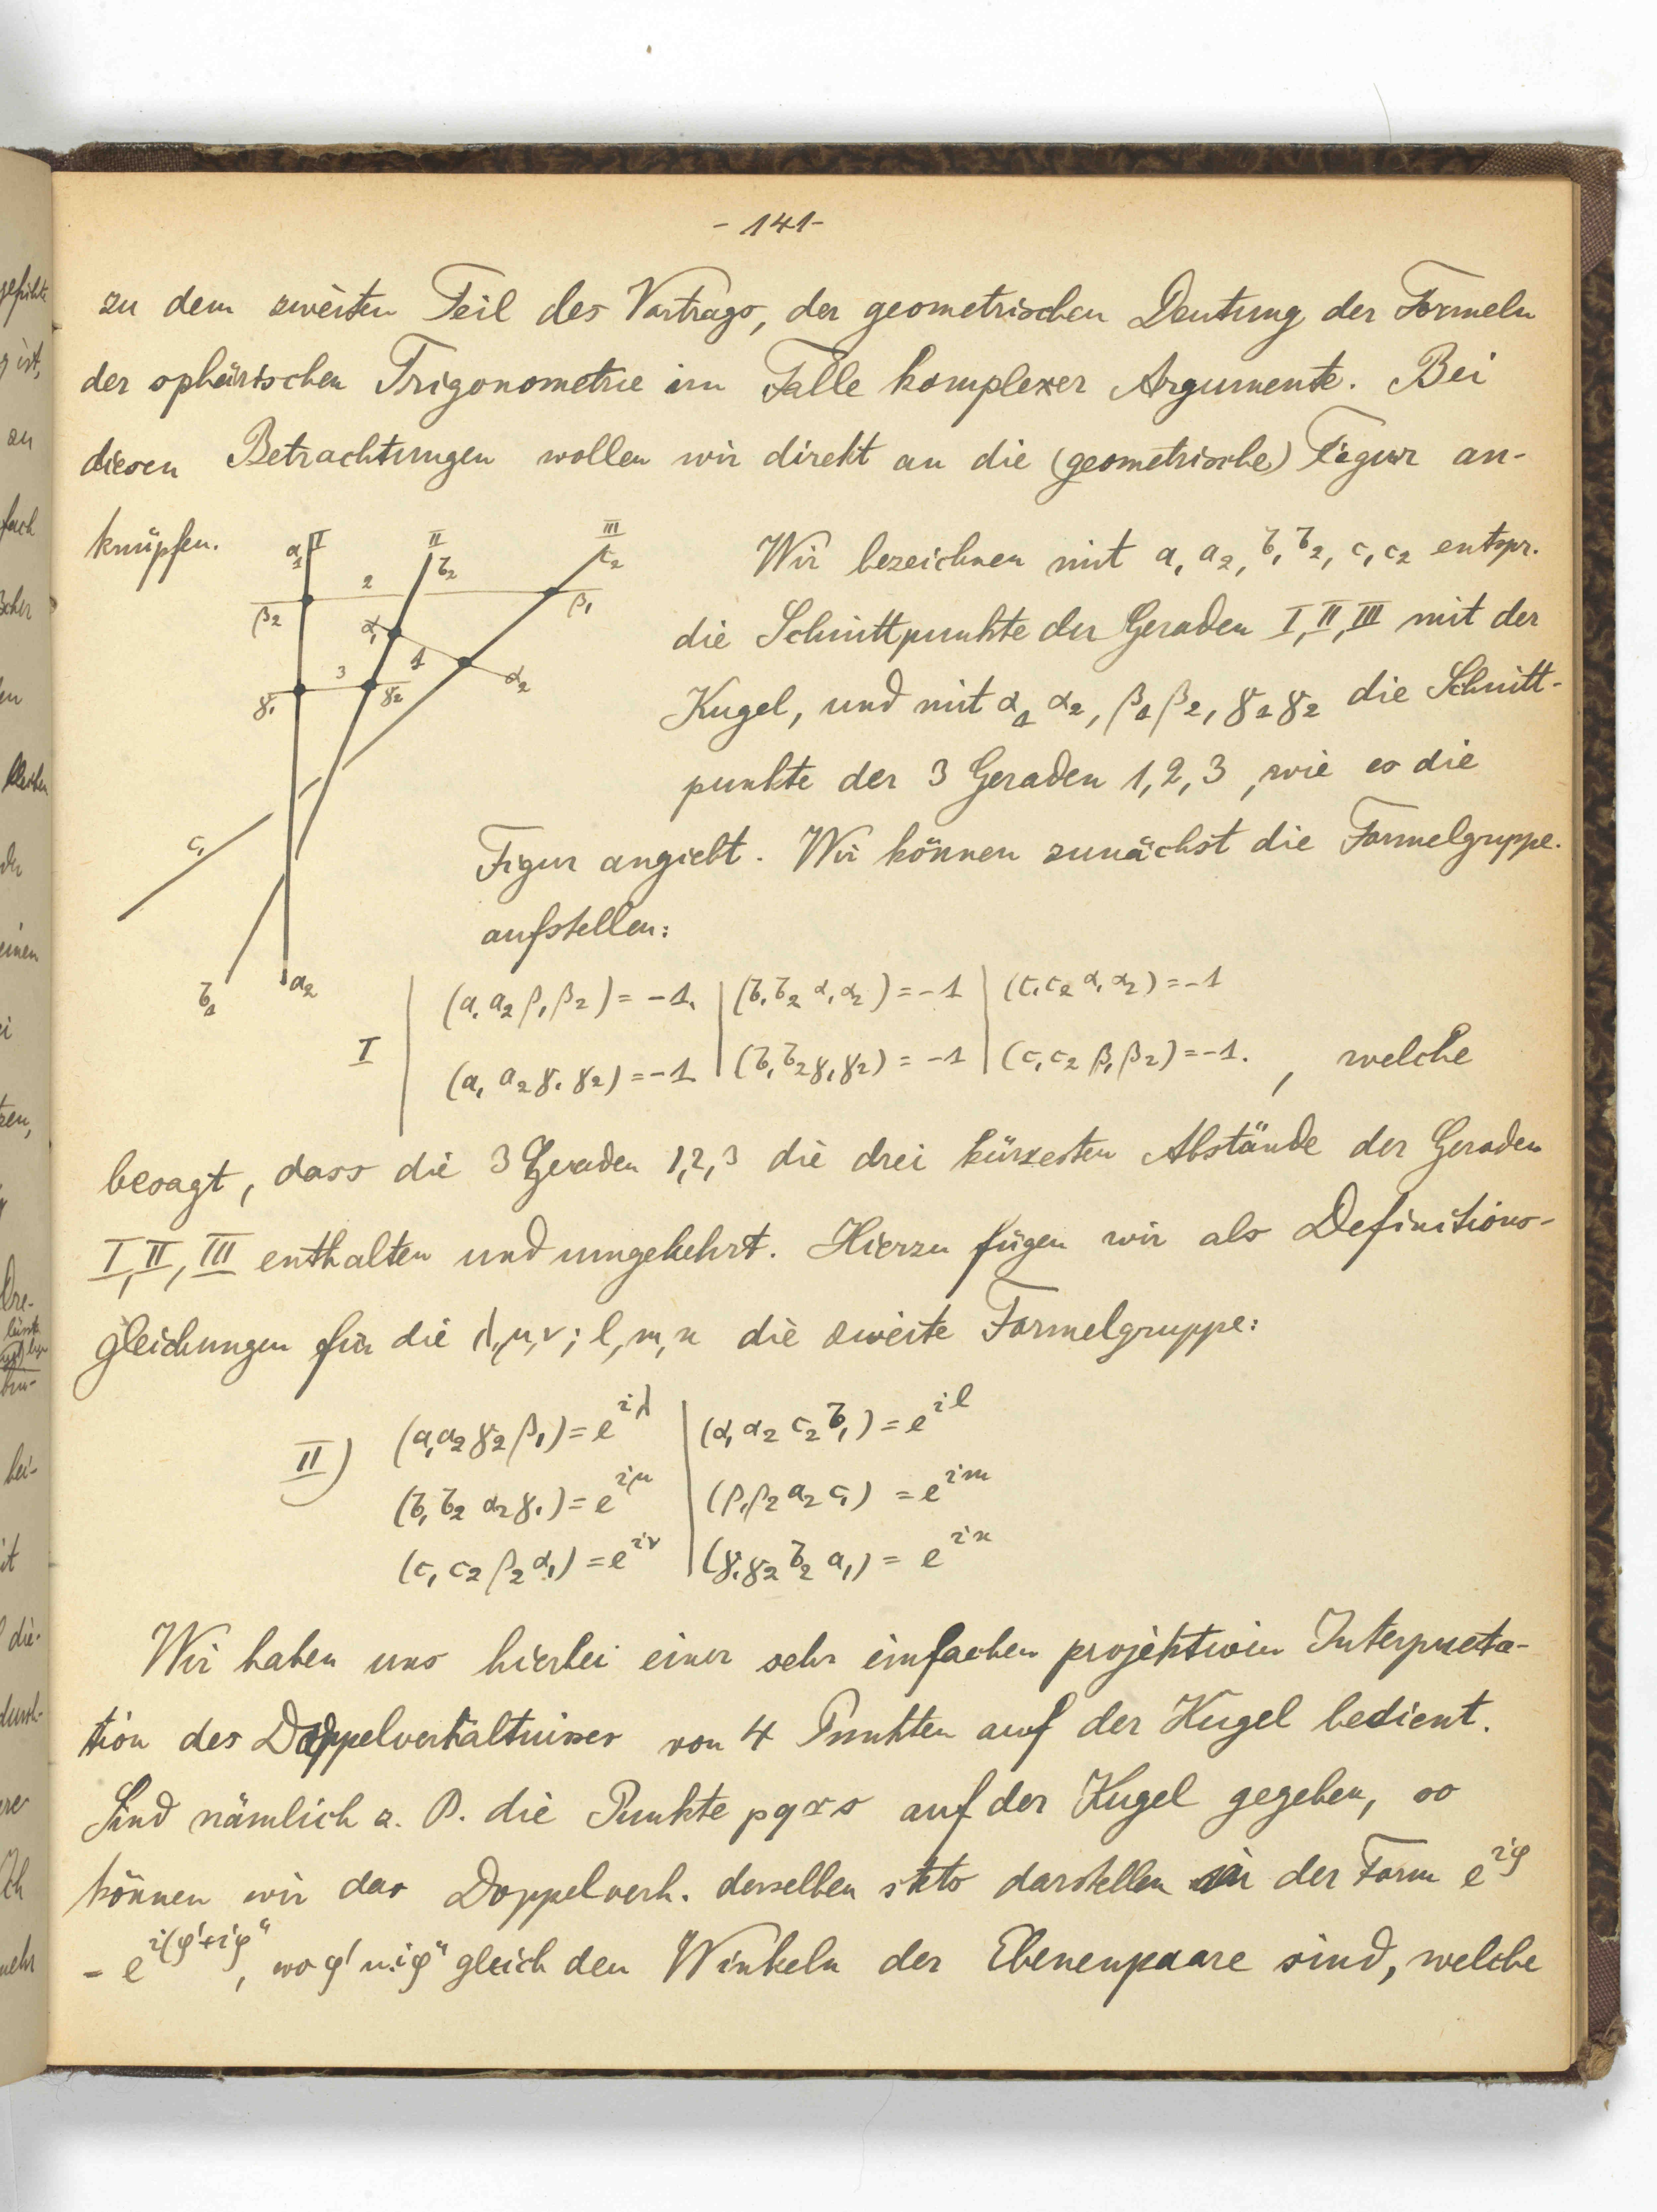 - 141 -
zu dem zweiten Teil des Vortrags, der geometrischen Deutung der Formeln
der sphärischen Trigonometrie im Falle komplexer Argumente. Bei
diesen Betrachtungen wollen wir direkt an die (geometrische) Figur an-
knüpfen.
a₁ I II III
b₂ c₂
2
β₂ β₁
α₁ 1 α₂
3
γ₁ γ₂
c₁
b₁ a₂
Wir bezeichnen mit a₁ a₂, b₁ b₂, c₁ c₂ entspr.
die Schnittpunkte der Geraden I, II, III mit der
Kugel, und mit α₁ α₂, β₁ β₂, γ₁ γ₂ die Schnitt-
punkte der 3 Geraden 1, 2, 3, wie es die
Figur angiebt. Wir können zunächst die Formelgruppe
aufstellen:
(a₁ a₂ β₁ β₂) = -1. | (b₁ b₂ α₁ α₂) = -1 | (c₁ c₂ α₁ α₂) = -1
I
(a₁ a₂ γ₁ γ₂) = -1 | (b₁ b₂ γ₁ γ₂) = -1 | (c₁ c₂ β₁ β₂) = -1. , welche
besagt, dass die 3 Geraden 1, 2, 3 die drei kürzesten Abstände der Geraden
I, II, III enthalten und umgekehrt. Hierzu fügen wir als Definitions-
gleichungen für die λ, μ, ν; l, m, n die zweite Formelgruppe:
II) (a₁ a₂ γ₂ β₁) = e^{iλ} | (α₁ α₂ c₂ b₁) = e^{il}
(b₁ b₂ α₂ γ₁) = e^{iμ} | (β₁ β₂ a₂ c₁) = e^{im}
(c₁ c₂ β₂ α₁) = e^{iν} | (γ₁ γ₂ b₂ a₁) = e^{in}
Wir haben uns hierbei einer sehr einfachen projektiven Interpreta-
tion des Doppelverhältnisses von 4 Punkten auf der Kugel bedient.
Sind nämlich z. B. die Punkte p q r s auf der Kugel gegeben, so
können wir das Doppelverh. derselben stets darstellen in der Form e^{iφ}
= e^{i(φ'+iφ''}, wo φ' u. iφ'' gleich den Winkeln der Ebenenpaare sind, welche